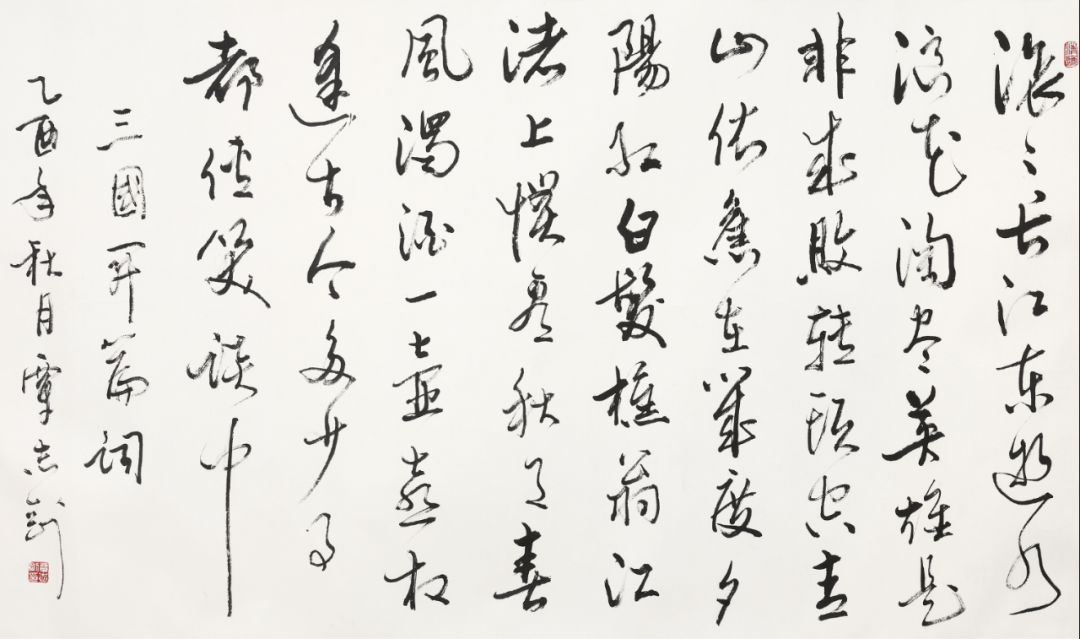 滚〻长江东逝水
浪花淘尽英雄是
非成败转頭空青
山依舊在幾度夕
陽红白髮樵翁江
渚上惯看秋月春
風濁酒一壶喜相
逢古今多少事
都付笑谈中
三國开篇词
乙酉年秋月覃志刚